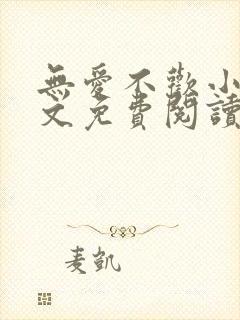 無愛不歡小
文免費閱讀
麦凯